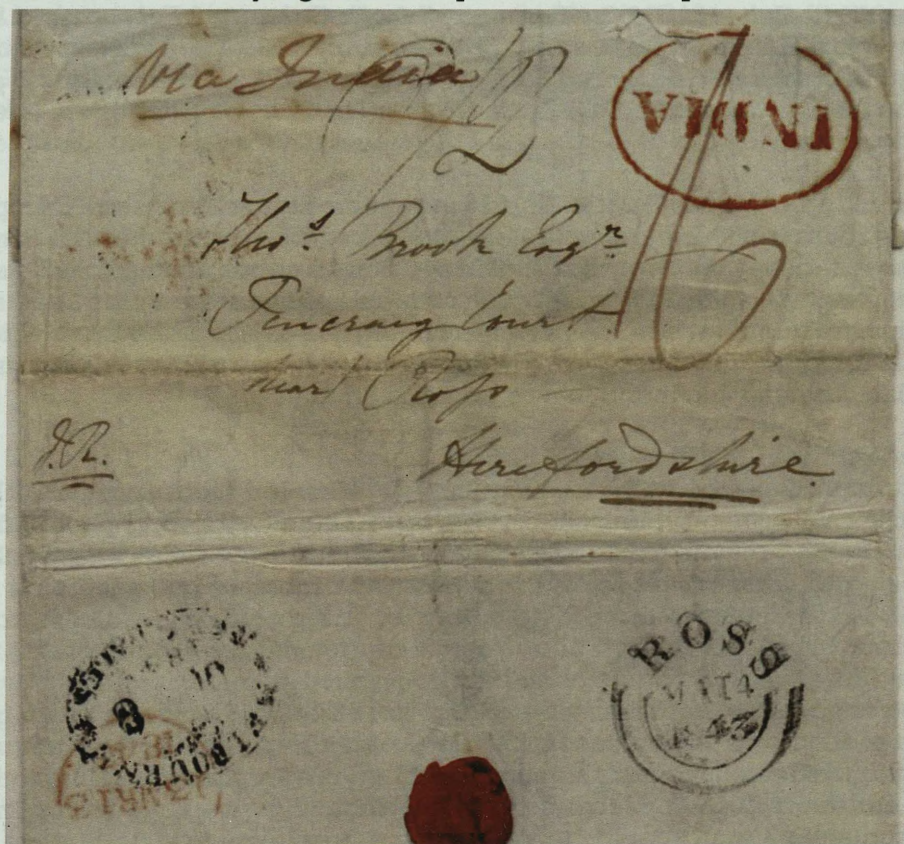 Via India
INDIA
Thos. Brook Esqr.
Pencraig Court
near Ross
J.R.
Herefordshire.
MELBOURNE
ROSS